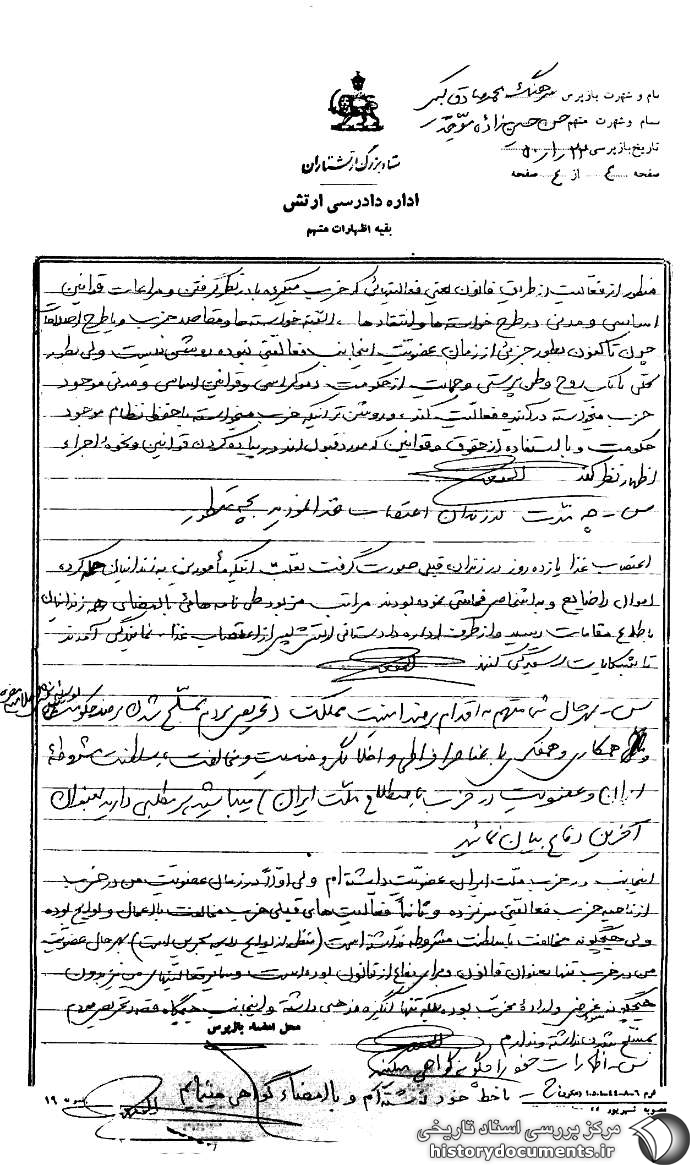 نام و شهرت بازپرس سرهنگ محمدصادق
نام و شهرت متهم حسن حسن زاده موحدی
تاریخ بازپرسی ۲۲
صفحه ٤ از ٤ صفحه
ستاد بزرگ ارتشتاران
اداره دادرسی ارتش
بقیه اظهارات متهم
منظور از فعالیت از طریق قانون یعنی فعالیتهائی که حزب میگیرد با در نظر گرفتن و مراعات قوانین
اساسی و مدنی در طرح خواسته ها و انتقادها، البته خواسته ها و مقاصد حزب و یا طرح اصلاحات
چون تاکنون بطور جزئی از زمان عضویت اینجانب فعالیتی نبوده روشن نیست ولی بطور
کلی با روح وطن پرستی و حمایت از حکومت دموکراسی و قوانین اساسی و مدنی موجود
حزب میخواسته در آینده فعالیت کند، و روشن تر اینکه حزب میخواسته با حفظ نظام موجود
حکومت و با استفاده از حقوق و قوانین که مورد قبول اند در پیاده کردن قوانین و نحوه اجراء
اظهار نظر کند
س - چه مدت در زندان اعتصاب غذا نمودید بچه منظور
اعتصاب غذا یازده روز در زندان قبلی صورت گرفت بعلت اینکه مأمورین به زندانیان حمله کرده،
اموال را ضایع و به اشخاص فحاشی نموده بودند مراتب مزبور طی نامه هائی با امضای همه زندانیان
باطلاع مقامات رسید و از طرف اداره دادستانی ارتش پس از اعتصاب غذا، نمایندگی آمدند
تا بشکایات رسیدگی کنند
س - بهر حال شما متهم به اقدام بر ضد امنیت مملکت (تحریص مردم بمسلح شدن بر ضد حکومت
همکاری و همفکری با عناصر افراطی و اخلالگر و ضدیت و مخالفت با سلطنت مشروطهٔ
ایران و عضویت در حزب باصطلاح ملت ایران) میباشید هر مطلبی دارید بعنوان
آخرین دفاع بیان نمائید
اینجانب در حزب ملت ایران عضویت داشته ام ولی اولاً در زمان عضویت من در حزب
از ناحیه حزب فعالیتی سر نزده و ثانیاً فعالیت های قبلی حزب مخالفت با اعمال و لوایح بوده
ولی هیچگونه مخالفت با سلطنت مشروطه نداشته است (منظور از لوایح لایحه بحرین است) بهر حال عضویت
من در حزب تنها بعنوان قانون و برای دفاع از قانون بوده است و سایر فعالیتهای من نیز بدون
هیچگونه غرضی و اراده مخرب بوده بلکه تنها انگیزه مذهبی داشته و اینجانب هیچگاه قصد تحریص مردم
بمسلح شدن نداشته و ندارم
محل امضاء بازپرس
س - اظهارات خود را چگونه گواهی میکنید
ج - با خط خود نوشته ام و با امضاء گواهی مینمایم
مرکز بررسی اسناد تاریخی
historydocuments.ir